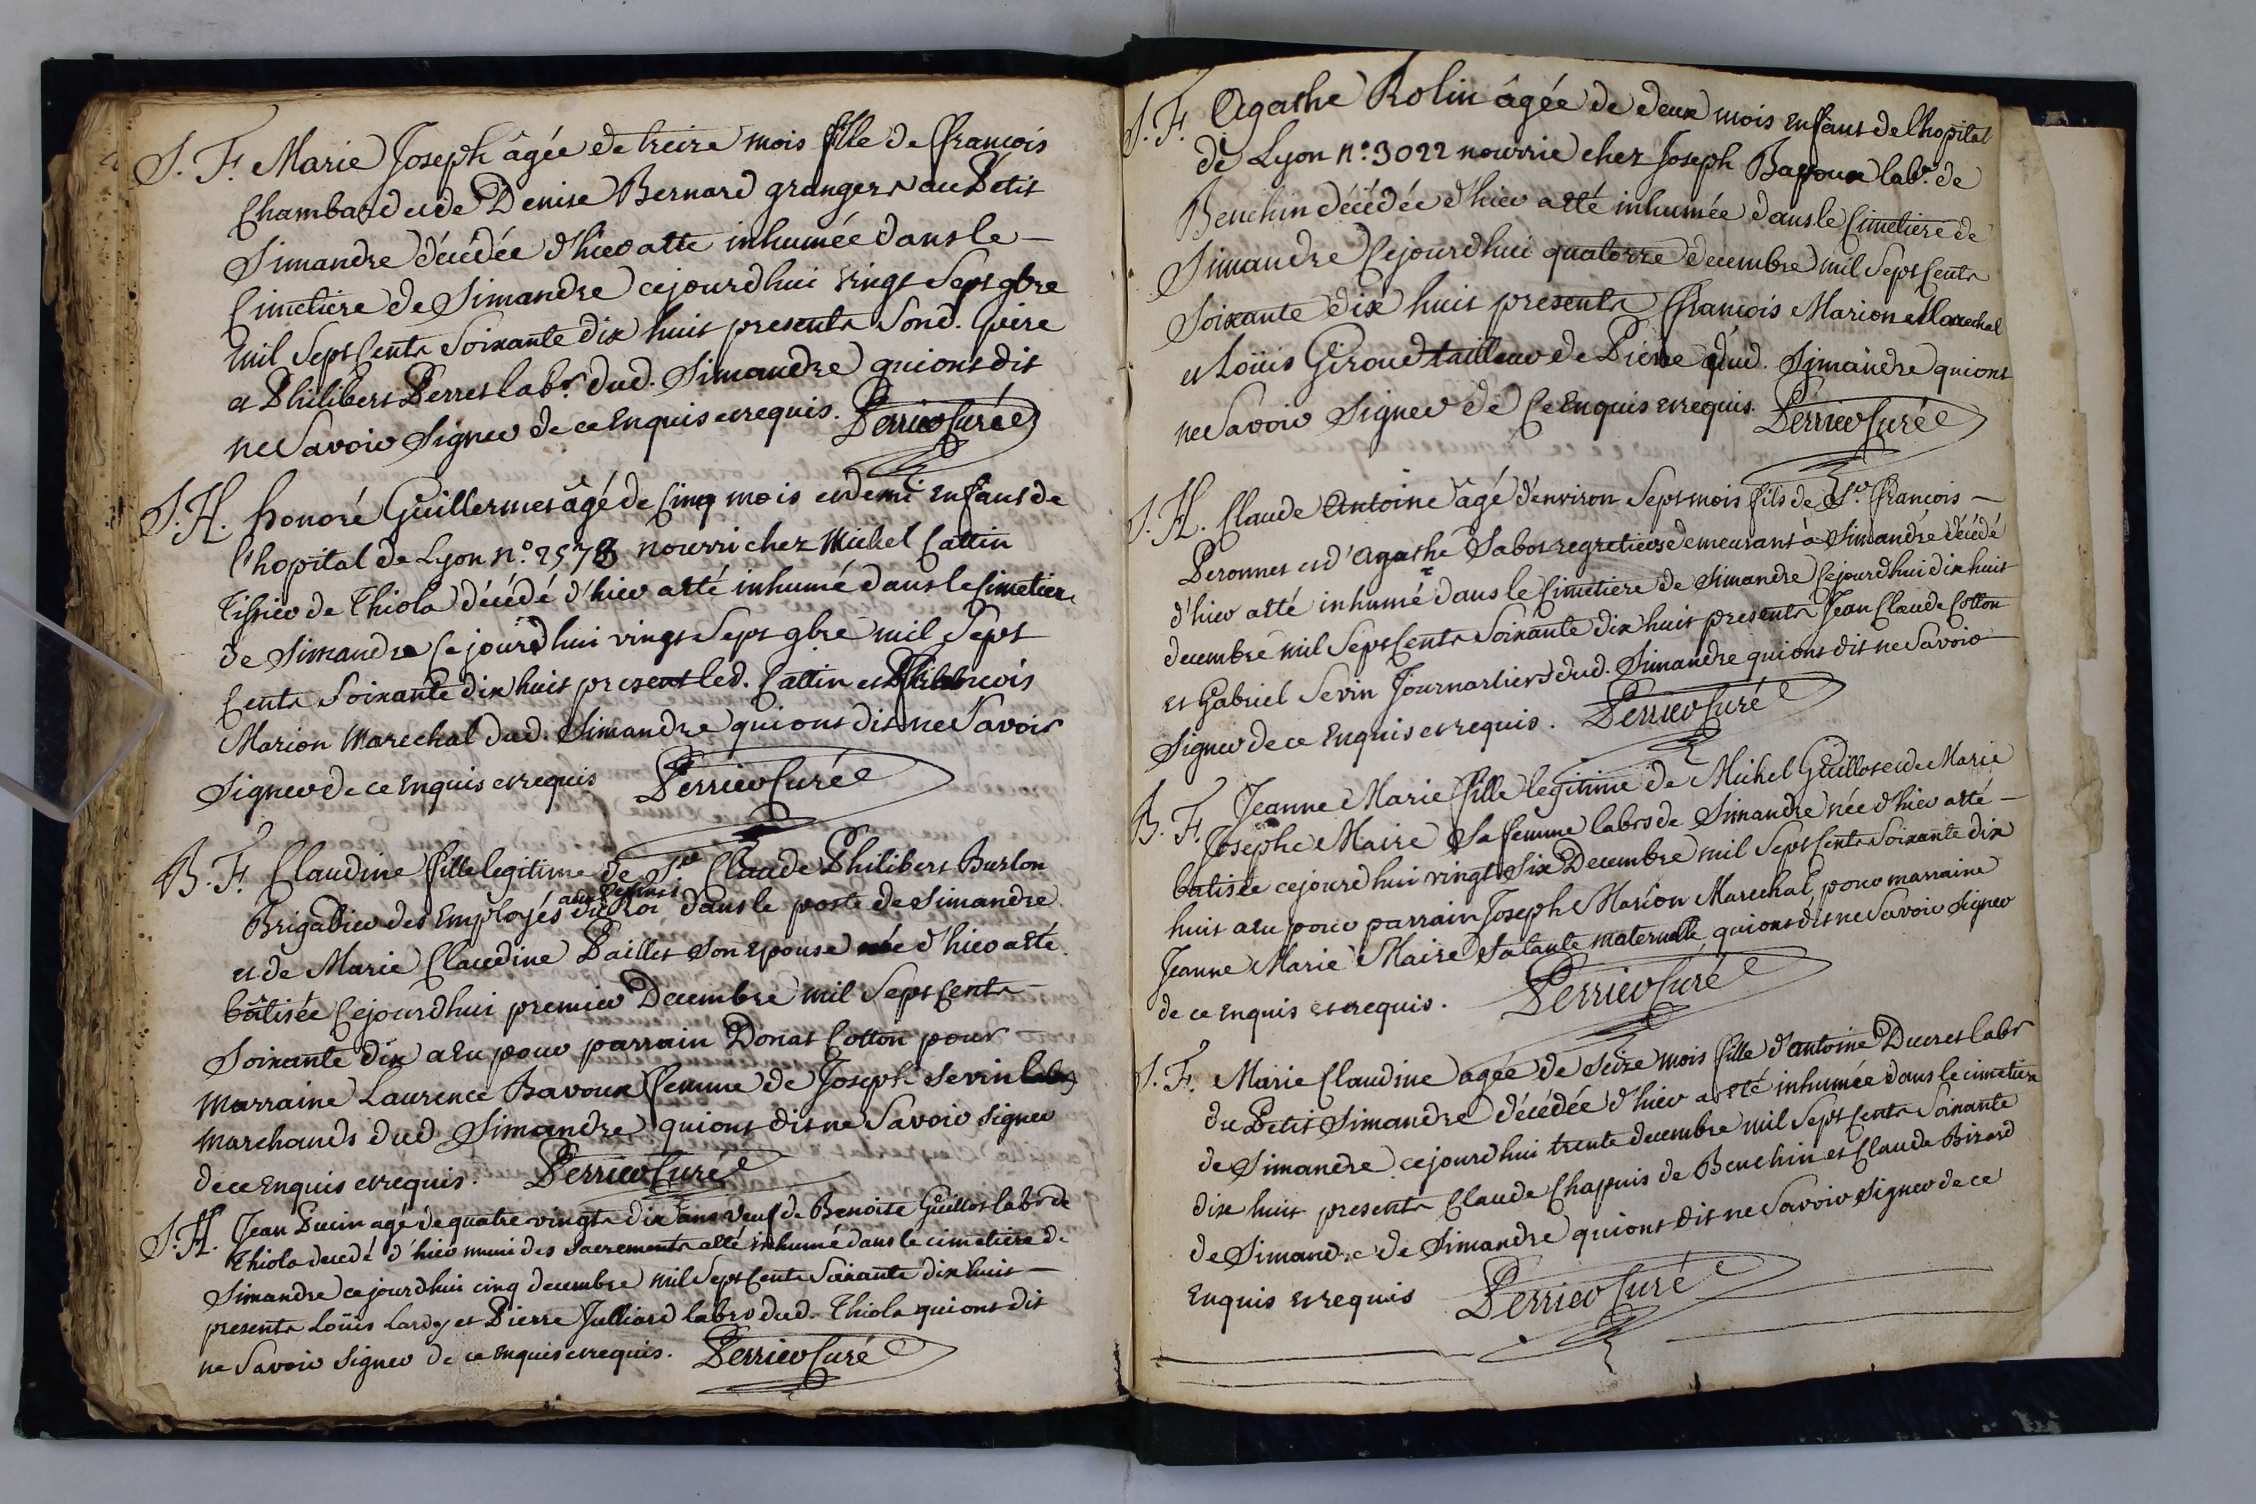 S. F. Marie Joseph âgée de treize mois fille de francois
Chambard et de Denise Bernard grangers au Petit
Simandre décédée d'hier atte inhumée dans le
Cimetiere de Simandre cejourd'hui vingt Sept 9bre
mil Sept Cents Soixante dix huit presents Sond. Guire
et Philibert Perret labr. dud. Simandre qui ont dit
ne Savoir Signer de ce Enquis et requis. Perrier Curé
S. H. honoré Guillermet âgé de Cinq mois et demi enfant de
l'hopital de Lyon n.o 2578 nourri chez Michel Cattin
Tissier de Thiola décédé d'hier atté inhumé dans le Cimetiere
de Simandre Cejourd'hui vingt Sept 9bre mil Sept
Cents Soixante dix huit present led. Cattin et
Marion Marechal dud. Simandre qui ont dit ne Savoir
Signer de ce enquis et requis Perrier Curé
B. F. Claudine fille legitime de Sr Claude Philibert Burlon
Brigadier des Employés du Roi dans le poste de Simandre
et de Marie Claudine Paillet Son epouse née d'hier atté
bâtisée Cejourd'hui premier Decembre mil Sept Cents
Soixante dix a eu pour parrain Donat Cotton pour
marraine Laurence Bavoux femme de Joseph Sevin
marchands dud Simandre qui ont dit ne Savoir Signer
de ce enquis et requis. Perrier Curé
S. H. Jean Pucin agé de quatre vingts dix ans veuf de Benoite Guillot labr de
Thiola decedé d'hier muni des Sacrements atté inhumé dans le cimetiere de
Simandre ce jourd'hui cinq decembre mil Sept Cents Soixante dix huit
presents Loüis Lardy et Pierre Julliard labrs dud. Thiola qui ont dit
ne Savoir Signer de ce enquis et requis. Perrier Curé
S. F. Agathe Rolin âgée de deux mois enfant de l'hopital
de Lyon n.o 3022 nourrie chez Joseph Bavoux labr. de
Benchin décédée d'hier atté inhumée dans le Cimetiere de
Simandre Cejourd'hui quatorze décembre mil Sept Cents
Soixante dix huit presents francois Marion Marechal
et Loüis Giroud tailleur de Pierre dud. Simandre qui ont
ne Savoir Signer de Ce Enquis et requis. Perrier Curé
S. H. Claude Antoine âgé d'environ Sept mois fils de Sr. francois
Peronnet et d'Agathe Sabot regretiers demeurant à Simandre décédé
d'hier atté inhumé dans le Cimetiere de Simandre Cejourd'hui dix huit
decembre mil Sept Cents Soixante dix huit presents Jean Claude Cotton
et Gabriel Sevin Journarliers dud. Simandre qui ont dit ne Savoir
Signer de ce Enquis et requis. Perrier Curé
B. F. Jeanne Marie fille legitime de Michel Guillot et de Marie
Josephe Maire Sa femme labrs de Simandre née d'hier atté
batisée cejourd'hui vingt Six Decembre mil Sept Cents Soixante dix
huit a eu pour parrain Joseph Marion Marechal pour marraine
Jeanne Marie Maire Sa tante maternelle qui ont dit ne Savoir Signer
de ce enquis et requis. Perrier Curé
S. F. Marie Claudine agée de Seize mois fille d'antoine Ducret labr
du Petit Simandre décédée d'hier atté inhumée dans le cimetiere
de Simandre cejourd'hui trente decembre mil Sept Cents Soixante
dix huit presents Claude Chapuis de Benchin et Claude Birard
de Simandre de Simandre qui ont dit ne Savoir Signer de ce
enquis et requis Perrier Curé